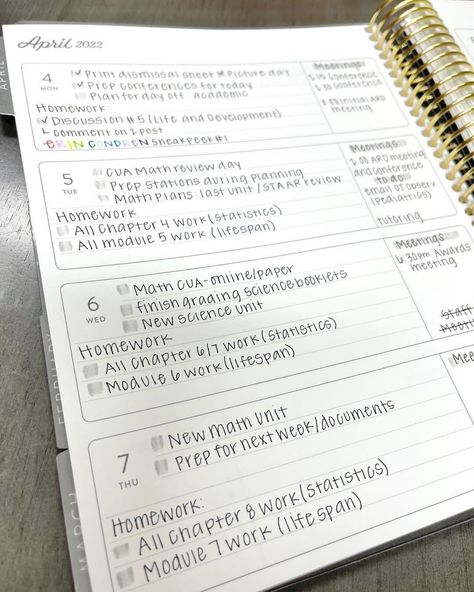 April 2022
APRIL
4
MON
Print dismissal sheet Picture day
Prep conferences for today
Plan for day off academic
Homework:
Discussion #5 (Life and Development)
Comment on 2 post
ERIN CONDREN sneak peek #1
Meetings
conference
conference
meeting
5
TUE
CUA Math review day
Prep stations during Planning
Math Plans last unit/STAAR review
Homework
All Chapter 4 work (statistics)
All module 5 work (lifespan)
Meetings
ARD meeting
and conference
to do
email OT observ
(Pediatrics)
tutoring
6
WED
Math CUA-online/paper
finish grading science booklets
New Science unit
Homework
All Chapter 6/7 work (statistics)
Module 6 work (lifespan)
Meetings
6:30pm Awards
meeting
Staff
FEBRUARY
7
THU
New Math Unit
Prep for next week/documents
Homework:
All Chapter 8 work (statistics)
Module 7 work (life span)
MARCH